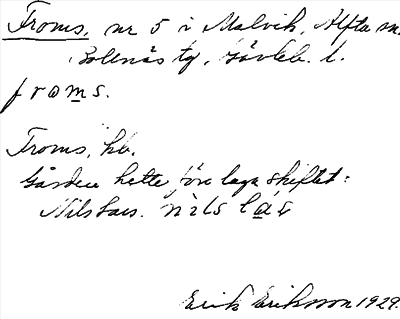 Froms, nr 5 i Malvik, Alfta sn.
Bollnäs tg, Gävleb. l.
froms.
Froms, hb.
Gården hette före laga skiftet:
Nilslars. nìls la̱s
Erik Eriksson 1929.